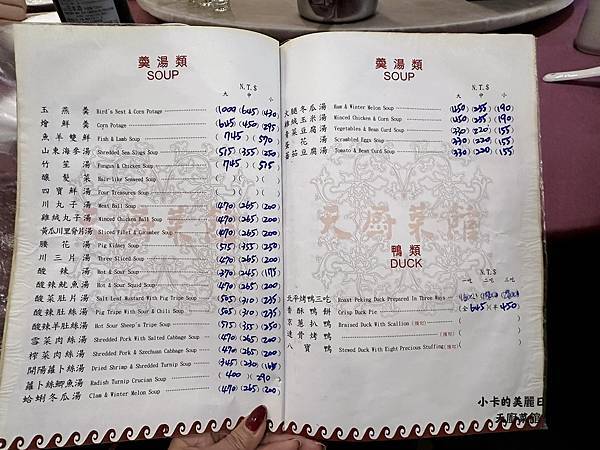 羹湯類
SOUP
N.T.$
大 中 小
玉燕羹 Bird's Nest & Corn Potage (1000)(645)(430)
燴鮮羹 Corn Potage (645)(450)(295)
魚羊雙鮮 Fish & Lamb Soup (745)(570)
山東海參湯 Shredded Sea Slugs Soup (575)(355)(250)
竹笙湯 Fungus & Chicken Soup (745)(575)
釀髮菜 Hair-like Seaweed Soup
四寶鮮湯 Four Treasures Soup
川丸子湯 Meat Ball Soup (470)(265)(200)
雞絨丸子湯 Minced Chicken Ball Soup (470)(265)(200)
黃瓜川里脊片湯 Sliced Filet & Cucumber Soup (470)(265)(200)
腰花湯 Pig Kidney Soup (575)(355)(250)
川三片湯 Three Sliced Soup (470)(265)(200)
酸辣湯 Hot & Sour Soup (370)(245)(175)
酸辣魷魚湯 Hot & Sour Squid Soup (470)(265)(200)
酸菜肚片湯 Salt Leaf Mustard With Pig Tripe Soup (505)(310)(235)
酸辣肚絲湯 Pig Tripe With Sour & Chili Soup (505)(310)(235)
酸辣羊肚絲湯 Hot Sour Sheep's Tripe Soup (575)(355)(250)
雪菜肉絲湯 Shredded Pork With Salted Cabbage Soup (470)(265)(200)
榨菜肉絲湯 Shredded Pork & Szechuan Cabbage Soup (470)(265)(200)
開陽蘿卜絲湯 Dried Shrimp & Shredded Turnip Soup (345)(230)
蘿卜絲鯽魚湯 Radish Turnip Crucian Soup (400)(290)
蛤蜊冬瓜湯 Clam & Winter Melon Soup (470)(265)(200)
羹湯類
SOUP
N.T.$
大 中 小
火腿冬瓜湯 Ham & Winter Melon Soup (450)(255)(190)
雞絨玉米湯 Minced Chicken & Corn Soup (450)(255)(190)
青菜豆腐湯 Vegetables & Bean Curd Soup (330)(220)(155)
蛋花湯 Scrambled Eggs Soup (330)(220)(155)
蕃茄豆腐湯 Tomato & Bean Curd Soup (330)(220)(155)
天廚菜館
鴨類
DUCK
N.T.$
一吃 二吃 三吃
北平烤鴨三吃 Roast Peking Duck Prepared In Three Ways
香酥鴨餅 Crisp Duck Pie (全645)(半450)
京蔥扒鴨 Braised Duck With Scallion (預知)
達骨烤鴨 (預知)
八寶鴨 Stewed Duck With Eight Precious Stuffing (預知)
小卡的美麗日
天廚菜館